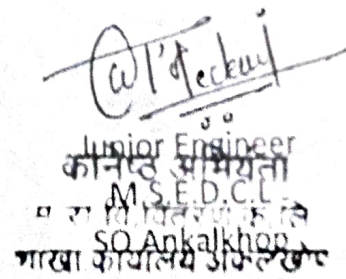 Junior Engineer
कनिष्ठ अभियंता
M.S.E.D.C.L.
म रा वि वितरण कं लि
SO Ankalkhop
शाखा कार्यालय अंकलखोप